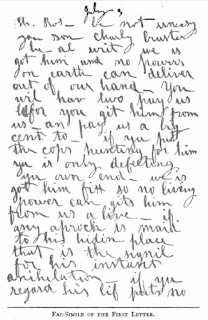 July 3
Mr. Ros- be not uneasy
you son charly bruster
he al writ we is
got him and no powers
on earth can deliver
out of our hand- You
wil hav two pay us
befor you git him from
us an pay us a big
cent to- if you put
the cops hunting for him
yu is only defeeting
yu own end- we is
got him fitt so no living
power can gits him
from us a live if
any aproch is maid
to his hidin place
that is the signil
for his instant
anihilation if yu
regard his lif puts no
FAC-SIMILE OF THE FIRST LETTER.